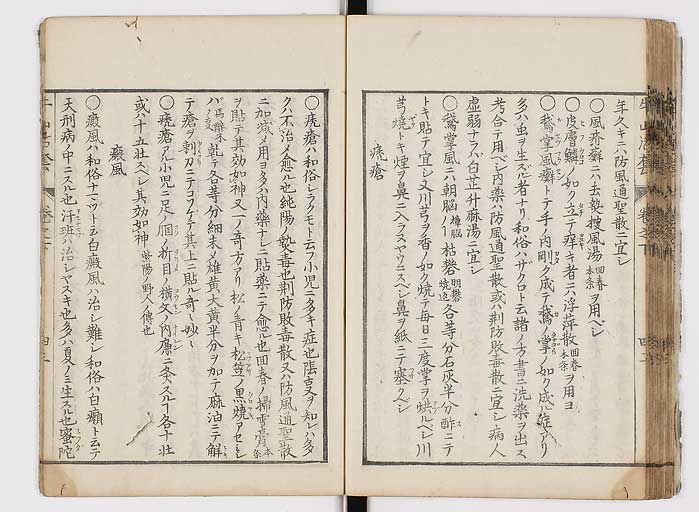 年久キニハ防風通聖散ニ宜シ
〇風疥癬ニハ去熱搜風湯回春本条ヲ用ベシ
〇皮膚鱗ノ如ク立テ痒キ者ニハ浮萍散回春本条ヲ用ヨ
〇鵞掌風癬トテ手ノ内剛ク成テ鵞ノ掌ノ如ク成ル症アリ
多クハ虫ヲ生ズル者ナリ和俗ハサクロト云諸ノ方書ニ洗薬ヲ出ス
考合テ用ベシ内薬ハ防風通聖散或ハ荊防敗毒散ニ宜シ病人
虚弱ナラハ白芷升麻湯ニ宜シ
〇鵞掌風ニハ朝脳 枯礬 各等分石灰半分酢ニテ
トキ貼テ宜シ又川芎ヲ香ノ如ク焼テ毎日三度掌ヲ烘ルベシ川
芎焼トキ煙ヲ鼻ニ入ラヌヤウニスベシ鼻ヲ紙ニテ塞クベシ
㿈瘡
〇㿈瘡ハ和俗シラクモト云フ小児ニ多キ症也陰変ヲ知レハ多
クハ不治メ愈ル也純陽ノ熱毒也荊防敗毒散又ハ防風通聖散
ニ加減メ用ヨ多ハ内薬ナレニ貼薬ニテ愈ル也回春ノ掃雪膏本条
ヲ貼テ其効如神又一ノ奇方アリ松ノ青キ松笠ノ黒焼
乾テ各等分細末メ雄黄大黄半分ヲ加テ麻油ニテ解
テ瘡ヲ剃刀ニテヨクケテ其上ニ貼ル奇〻妙〻
小児ニ足ノ膕ノ折目ノ横文ノ内廉ニ灸スルヿ各十壮
或ハ十五壮スベシ其効如神 紫陽ノ野人ノ傳也
癜風
〇癜風ハ和俗ナマヅト云白癜風ハ治シ難シ和俗ハ白癩ト云テ
天刑病ノ中ニスル也汗班ハ治シマスキ也多ハ夏ノミ生スル也蜜陀